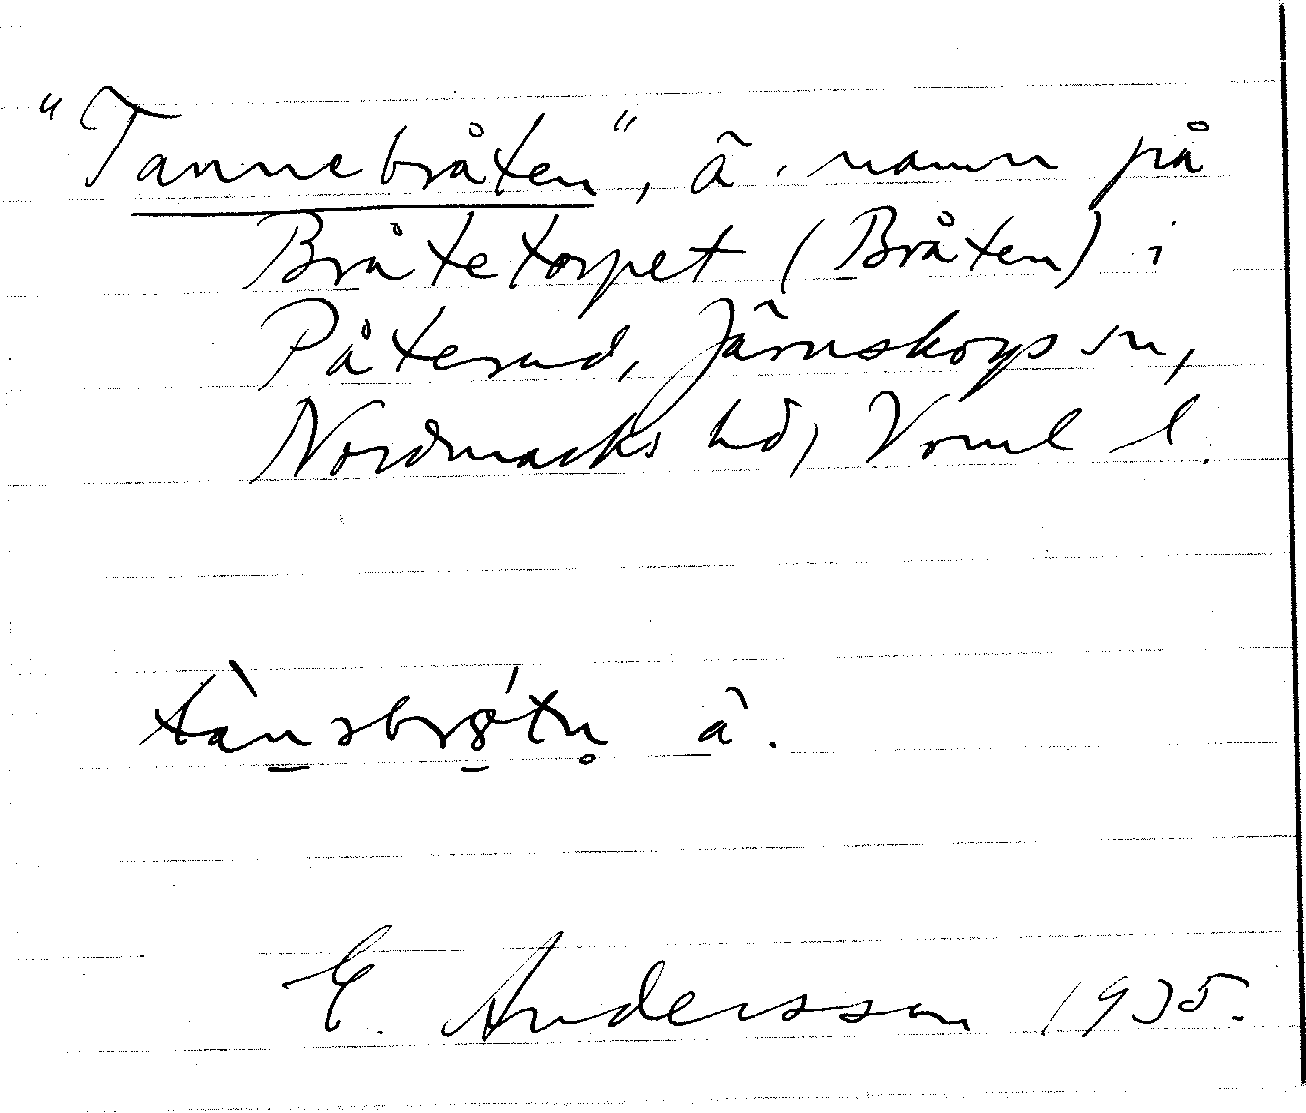 "Tannebråten", ä. namn på
Bråtetorpet (Bråten) i
Påterud, Järnskogs sn,
Nordmarks hd, Vrml l.
ä.
E. Andersson 1935.